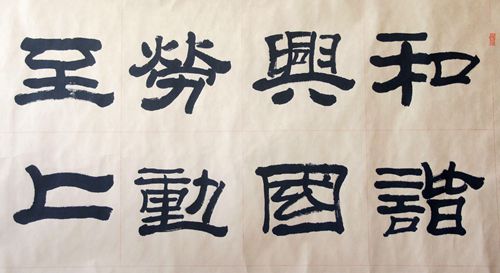 和諧
興國
勞動
至上